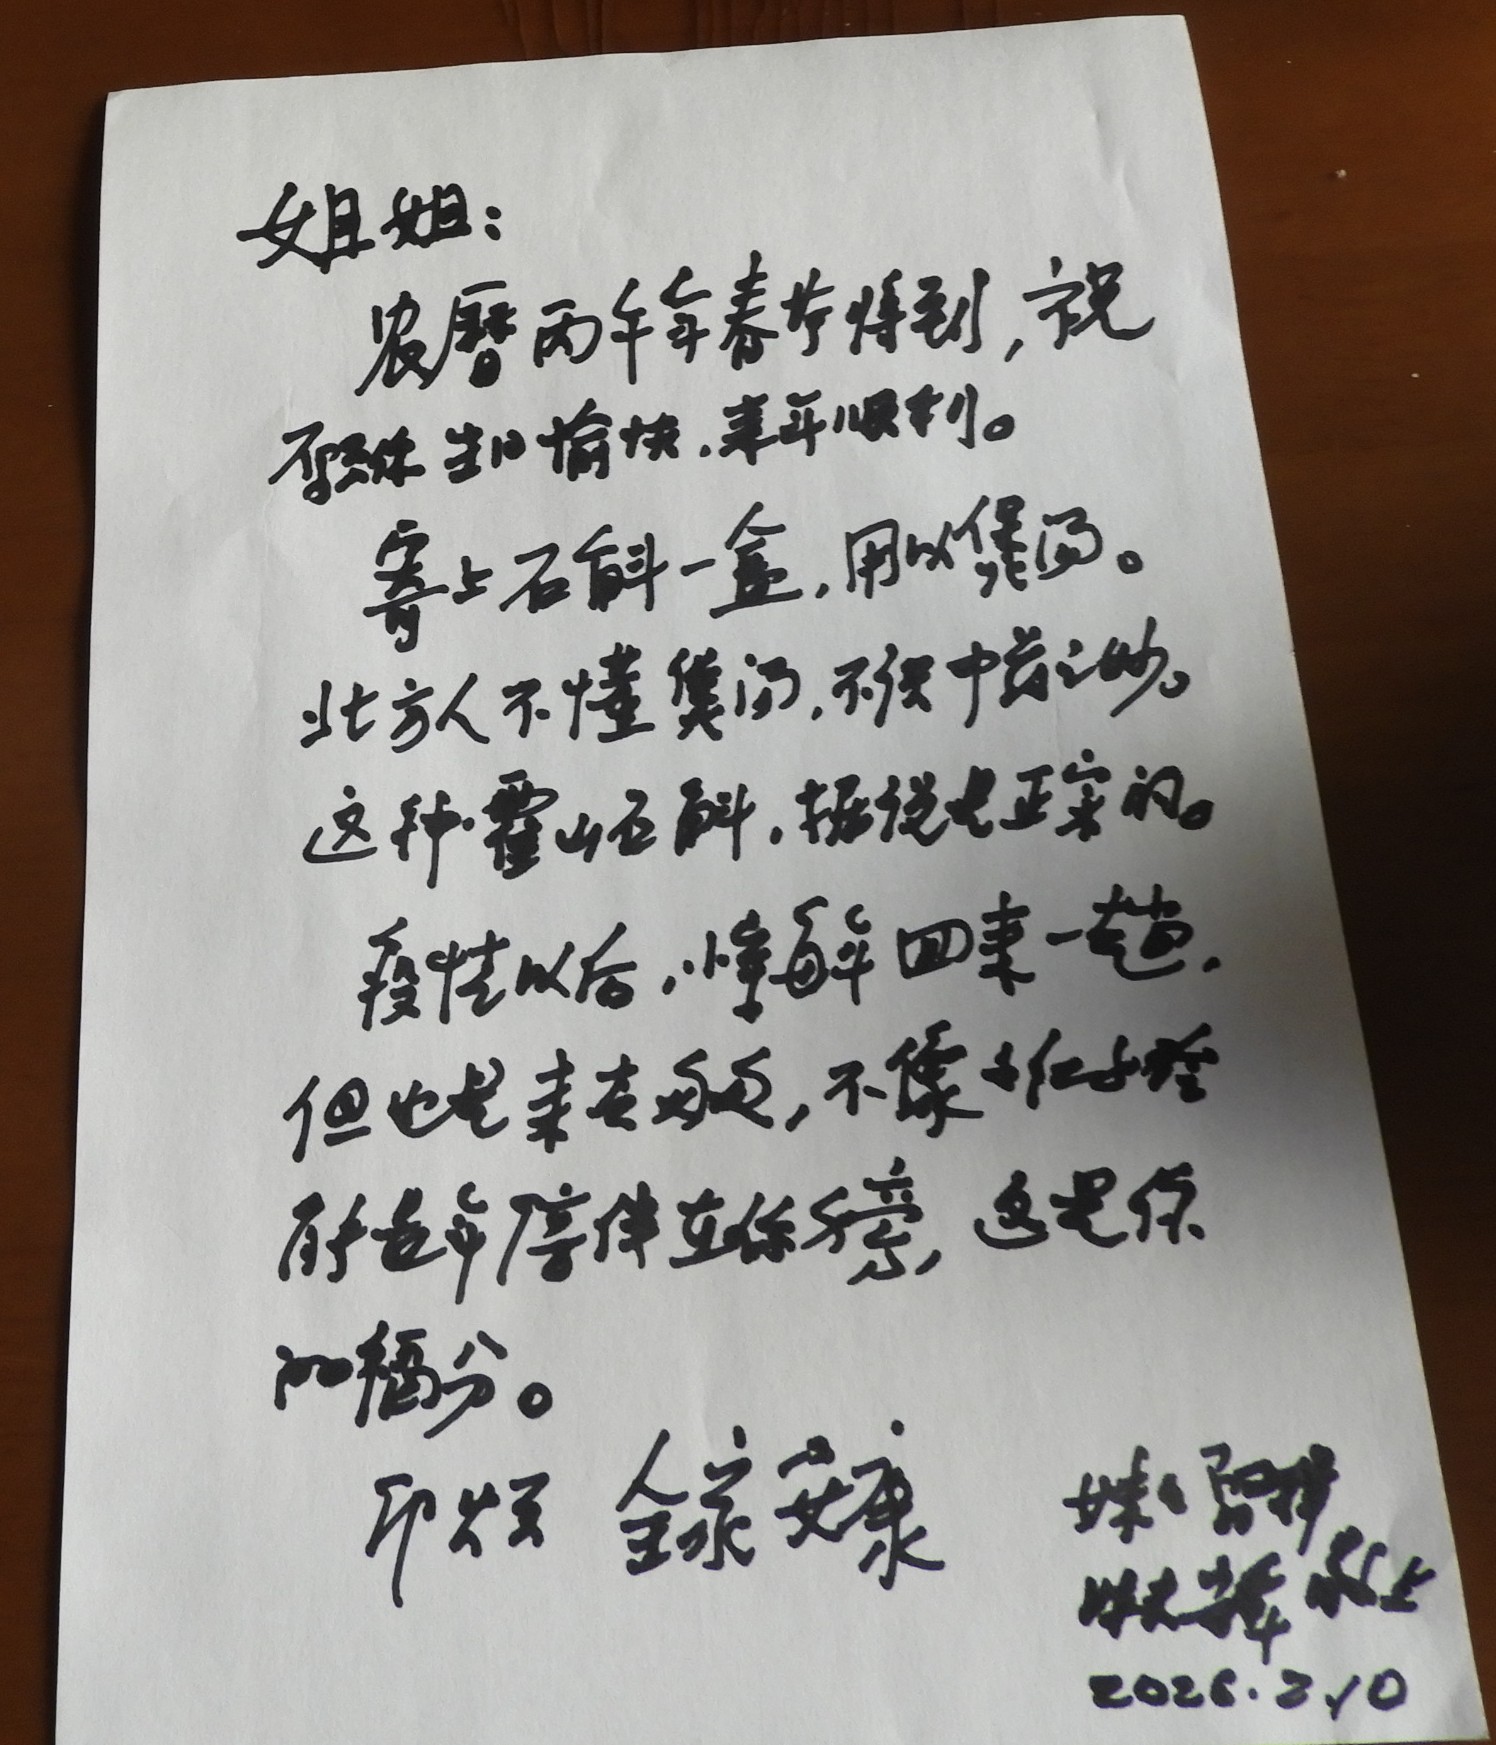 姐姐：
农曆丙午年春节将到，祝
你生日愉快，来年顺利。
寄上石斛一盒，用以煲汤。
北方人不懂煲汤，不识中药之妙。
这种霍山石斛，据说是正宗的。
疫情以后，小 每年回来一趟，
但也是来去匆匆，不像
陪伴在你身旁，这是你
的福分。
即颂 全家安康
妹妹
妹夫 敬上
2026.2.10